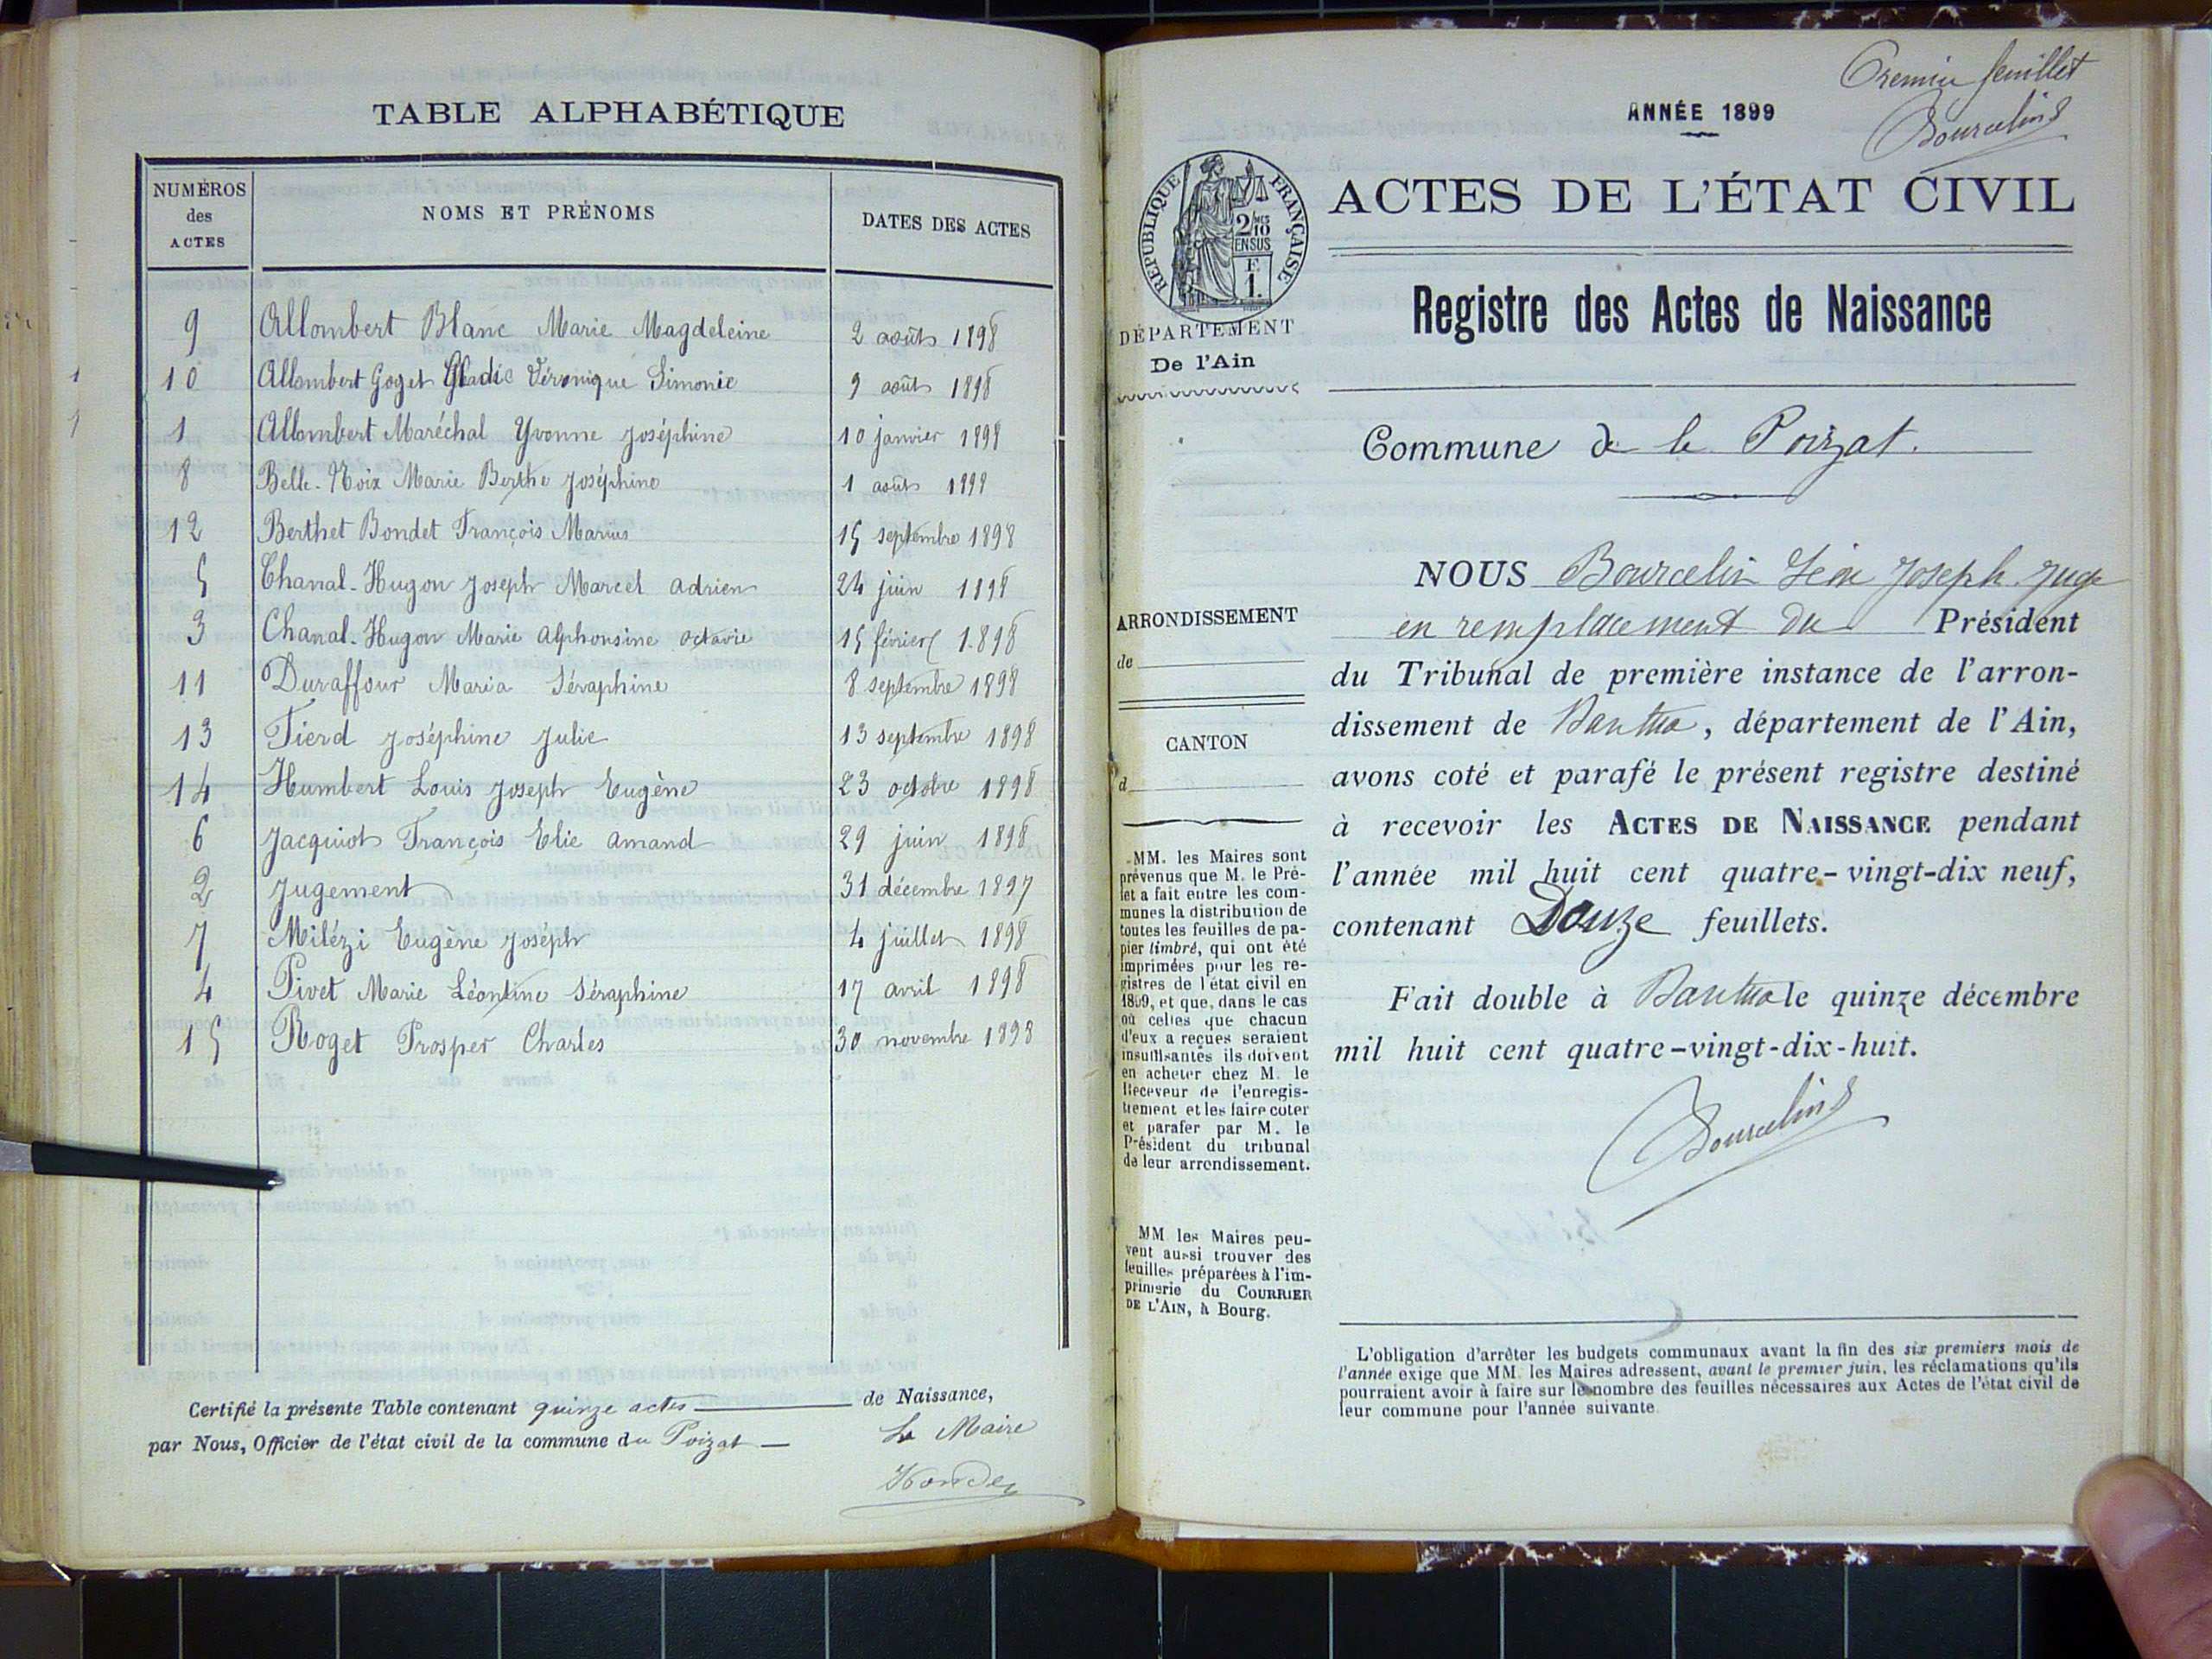 TABLE ALPHABÉTIQUE
NUMÉROS des ACTES NOMS ET PRÉNOMS DATES DES ACTES
9 Allombert Blanc Marie Magdeleine 2 août 1898
10 Allombert Goget Véronique Simonie 9 août 1898
1 Allombert Maréchal Yvonne Joséphine 10 janvier 1898
8 Belle-Noix Marie Berthe Joséphine 1 août 1898
12 Berthet Bondet François Marius 15 septembre 1898
5 Chanal-Hugon Joseph Marcel Adrien 24 juin 1898
3 Chanal-Hugon Marie Alphonsine Octavie 15 février 1898
11 Duraffour Maria Séraphine 8 septembre 1898
13 Fierd Joséphine Julie 13 septembre 1898
14 Humbert Louis Joseph Eugène 23 octobre 1898
6 Jacquiot François Elie Amand 29 juin 1898
2 Jugement 31 décembre 1897
7 Milézi Eugène Joséph 4 juillet 1898
4 Pivet Marie Léontine Séraphine 17 avril 1898
15 Roget Prosper Charles 30 novembre 1898
Certifié la présente Table contenant quinze actes de Naissance,
par Nous, Officier de l'état civil de la commune du Poizat
Le Maire
Premier feuillet
Bourcelin
ANNÉE 1899
RÉPUBLIQUE FRANÇAISE
2/10 MES
EN SUS
F.
1.
ACTES DE L'ÉTAT CIVIL
DÉPARTEMENT
De l'Ain
Registre des Actes de Naissance
Commune de le Poizat.
ARRONDISSEMENT
de
CANTON
d
MM. les Maires sont
prévenus que M. le Pré-
fet a fait entre les com-
munes la distribution de
toutes les feuilles de pa-
pier timbré, qui ont été
imprimées pour les re-
gistres de l'état civil en
1899, et que, dans le cas
où celles que chacun
d'eux a reçues seraient
insuffisantes ils doivent
en acheter chez M. le
Receveur de l'enregis-
trement et les faire coter
et parafer par M. le
Président du tribunal
de leur arrondissement.
MM les Maires peu-
vent aussi trouver des
feuilles préparées à l'im-
primerie du COURRIER
DE L'AIN, à Bourg.
NOUS Bourcelin Léon Joseph Juge
en remplacement du Président
du Tribunal de première instance de l'arron-
dissement de Nantua, département de l'Ain,
avons coté et parafé le présent registre destiné
à recevoir les ACTES DE NAISSANCE pendant
l'année mil huit cent quatre-vingt-dix neuf,
contenant Douze feuillets.
Fait double à Nantua le quinze décembre
mil huit cent quatre-vingt-dix-huit.
Bourcelin
L'obligation d'arrêter les budgets communaux avant la fin des six premiers mois de
l'année exige que MM. les Maires adressent, avant le premier juin, les réclamations qu'ils
pourraient avoir à faire sur le nombre des feuilles nécessaires aux Actes de l'état civil de
leur commune pour l'année suivante.